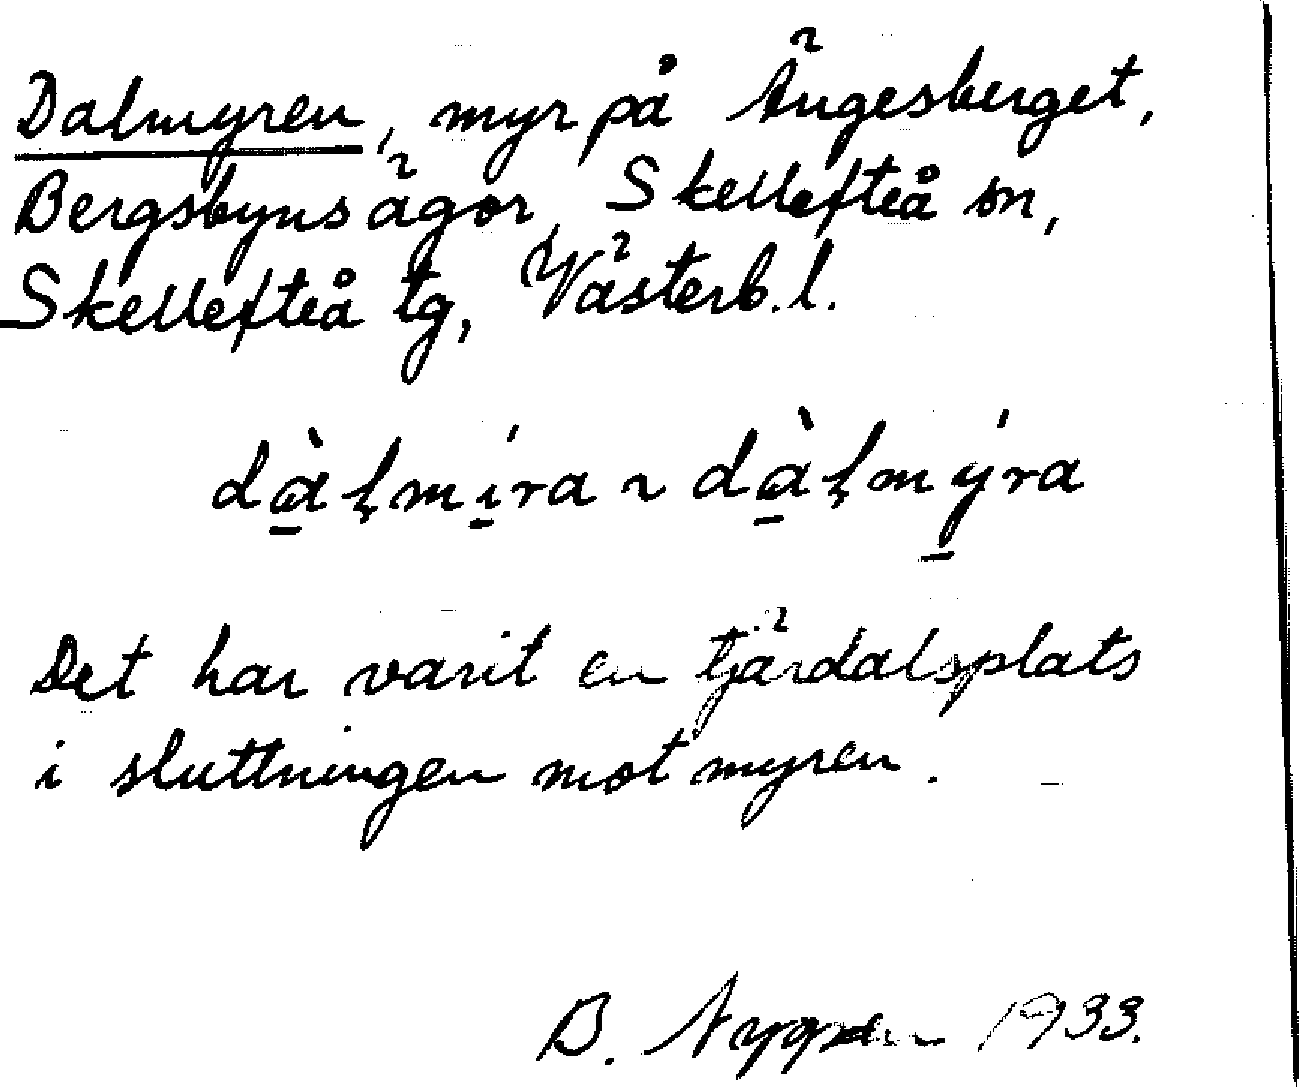 Dalmyren, myr på Ängesberget,
Bergsbyns ägor, Skellefteå sn,
Skellefteå tg, Västerb. l.
dà̱ḷmí̱ra ~ dà̱ḷmý̱ra
Det har varit en tjärdalsplats
i sluttningen mot myren.
B. Nygren 1933.